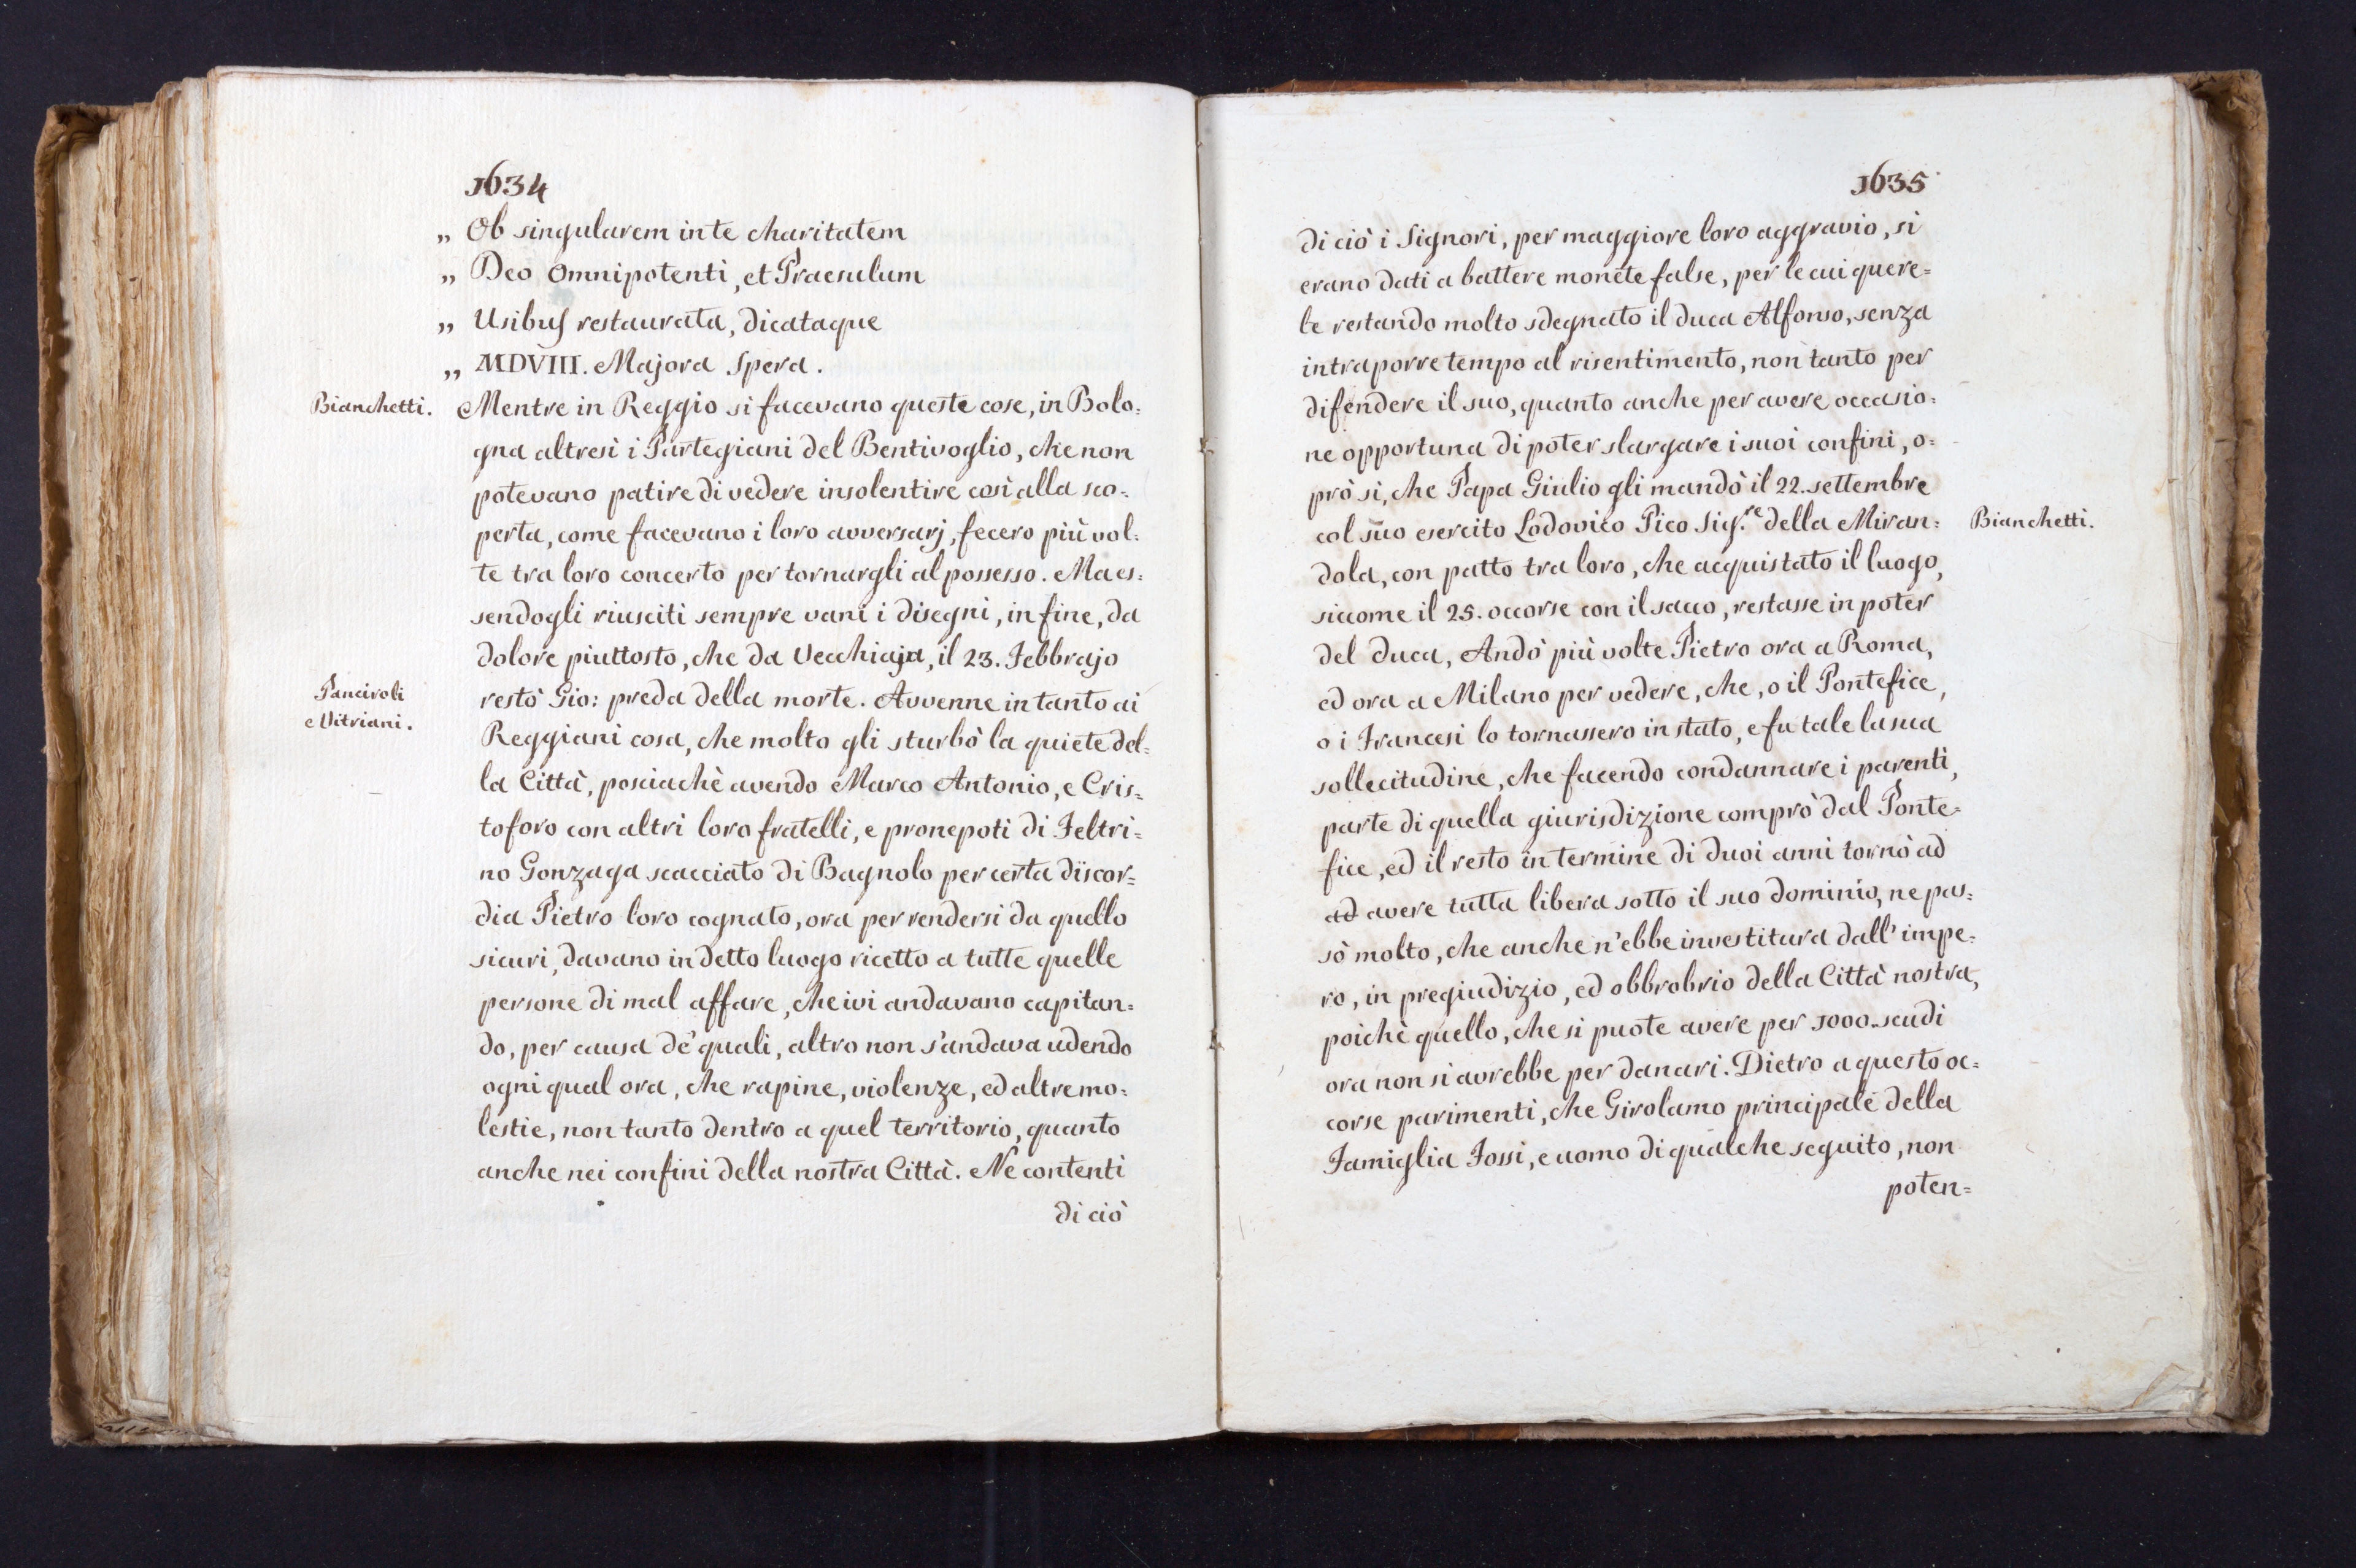 1634
„ Ob singularem in te charitatem
„ Deo Omnipotenti, et Praesulum
„ Usibus restaurata, dicataque
„ MDVIII. Majora Spera.
Bianchetti.
Mentre in Reggio si facevano queste cose, in Bolo=
gna altresì i Partegiani del Bentivoglio, che non
potevano patire di vedere insolentire così alla sco=
perta, come facevano i loro avversarj, fecero più vol=
te tra loro concerto per tornargli al possesso. Ma es=
sendogli riusciti sempre vani i disegni, in fine, da
dolore piuttosto, che da Vecchiaja, il 23. Febbrajo
Panciroli
e Vitriani.
restò Gio: preda della morte. Avvenne in tanto ai
Reggiani cosa, che molto gli sturbò la quiete del=
la Città, posciachè avendo Marco Antonio, e Cris=
toforo con altri loro fratelli, e pronepoti di Feltri=
no Gonzaga scacciato di Bagnolo per certa discor=
dia Pietro loro cognato, ora per rendersi da quello
sicuri, davano in detto luogo ricetto a tutte quelle
persone di mal affare, che ivi andavano capitan=
do, per causa de' quali, altro non s'andava udendo
ogni qual ora, che rapine, violenze, ed altre mo=
lestie, non tanto dentro a quel territorio, quanto
anche nei confini della nostra Città. Ne contenti
di ciò
1635
di ciò i Signori, per maggiore loro aggravio, si
erano dati a battere monete false, per le cui quere=
le restando molto sdegnato il duca Alfonso, senza
intraporre tempo al risentimento, non tanto per
difendere il suo, quanto anche per avere occasio=
ne opportuna di poter slargare i suoi confini, o=
prò sì, che Papa Giulio gli mandò il 22. settembre
col suo esercito Lodovico Pico Sig.re della Miran=
Bianchetti.
dola, con patto tra loro, che acquistato il luogo,
siccome il 25. occorse con il sacco, restasse in poter
del duca, Andò più volte Pietro ora a Roma,
ed ora a Milano per vedere, che, o il Pontefice,
o i Francesi lo tornassero in stato, e fu tale la sua
sollecitudine, che facendo condannare i parenti,
parte di quella giurisdizione comprò dal Ponte=
fice, ed il resto in termine di duoi anni tornò ad
ad avere tutta libera sotto il suo dominio, ne pas=
sò molto, che anche n'ebbe investitura dall' impe=
ro, in pregiudizio, ed obbrobrio della Città nostra,
poichè quello, che si puote avere per 1000. scudi
ora non si avrebbe per danari. Dietro a questo oc=
corse parimenti, che Girolamo principale della
Famiglia Fossi, e uomo di qualche seguito, non
poten=